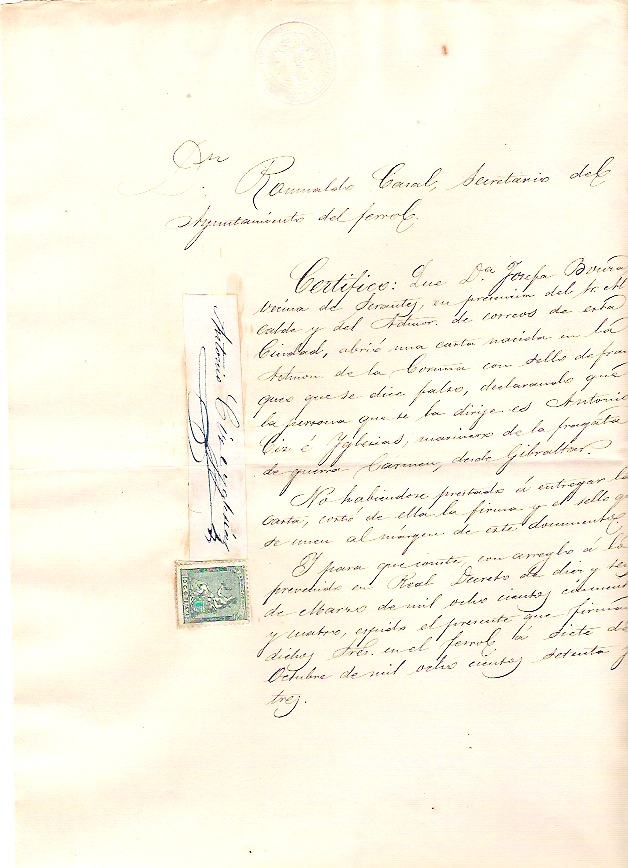 Dn
D. Romualdo Casal, Secretario del
Ayuntamiento del ferrol.
Certifico: Que D.ª Josefa Bouza
vecina de Serantes, en presencia del Sr. Al
calde y del Admor. de correos de esta
Ciudad, abrió una carta nacida en la
Admon de la Coruña con sello de fran
queo que se dice falso, declarando que
la persona que se la dirije es Antonio
Ciz é Yglesias, marinero de la fragata
de guerra Cármen, desde Gibraltar.
No habiendose prestado á entregar la
carta, cortó de ella la firma y el sello q
se unen al márgen de este documento.
Y para que conste, con arreglo á lo
prevenido en Real Decreto de diez y seis
de Marzo de mil ocho cientos cincuenta
y cuatro, espido el presente que firman
dichos Sres. en el ferrol á siete de
Octubre de mil ocho cientos setenta y
tres.
Antonio Ciz e yglesias